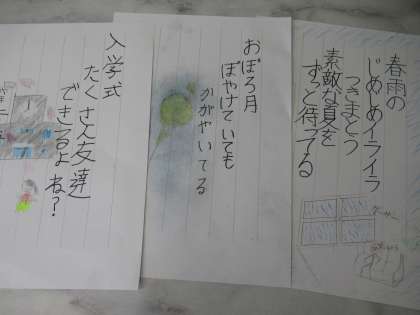 春雨の
じめじめイライラ
つきまとう
素敵な貝を
ずっと待ってる
おぼろ月
ぼやけていても
かがやいてる
入学式
たくさん友達
できるよね?